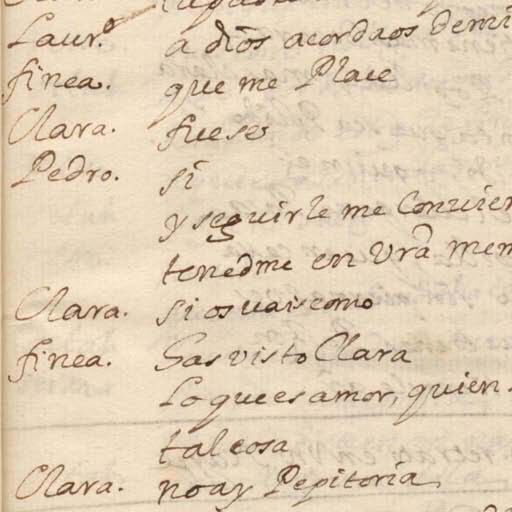 Laur.º a dios acordaos de mi
finea. que me Place
Clara. fuese
Pedro. si
y seguirle me Convien
tenedme en Vrã mem
Clara. si os vais como
finea. Has visto Clara
Lo que es amor, quien
tal cosa
Clara. no ay Pepitoria